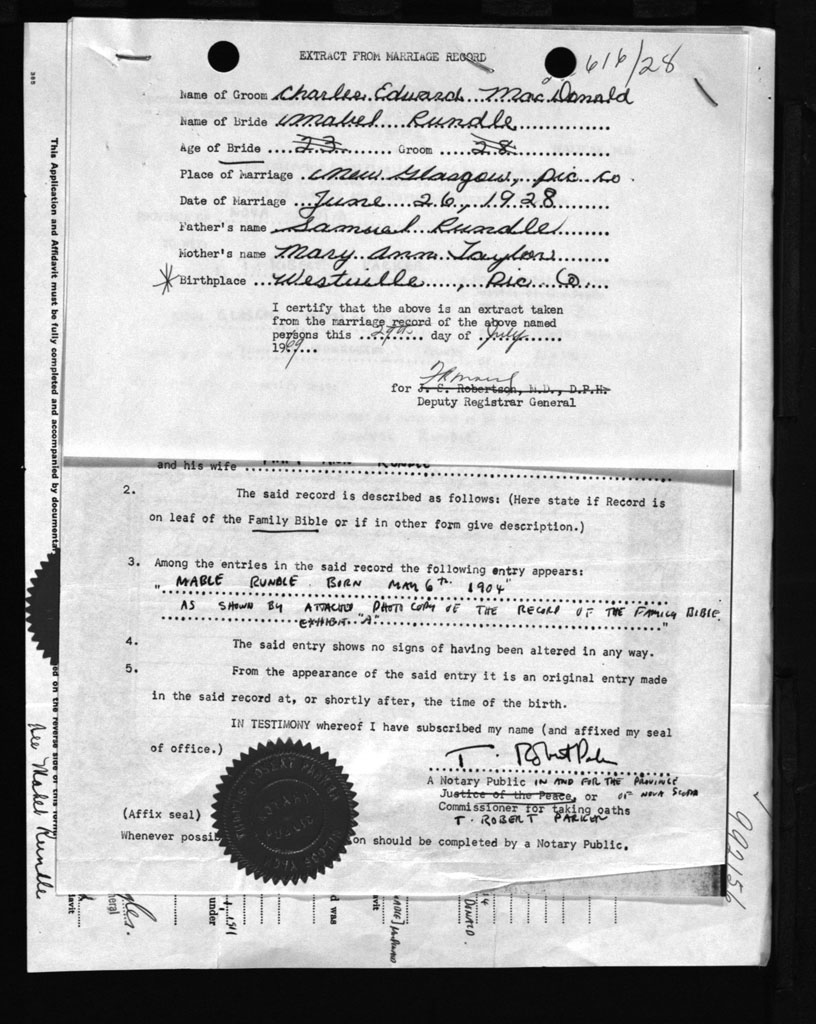 EXTRACT FROM MARRIAGE RECORD
616/28
Name of Groom Charles Edward MacDonald
Name of Bride Mabel Rundle
Age of Bride 23 Groom 28
Place of Marriage New Glasgow, Pic. Co.
Date of Marriage June 26, 1928
Father's name Samuel Rundle
Mother's name Mary Ann Taylor
* Birthplace Westville, Pic. Co.
I certify that the above is an extract taken
from the marriage record of the above named
persons this 29th day of July
1969
for J. C. Robertson, M.D., D.P.H.
Deputy Registrar General
and his wife
2. The said record is described as follows: (Here state if Record is
on leaf of the Family Bible or if in other form give description.)
3. Among the entries in the said record the following entry appears:
" MABLE RUNDLE BORN MAY 6th 1904"
AS SHOWN BY ATTACHED PHOTO COPY OF THE RECORD OF THE FAMILY BIBLE.
EXHIBIT "A" "
4. The said entry shows no signs of having been altered in any way.
5. From the appearance of the said entry it is an original entry made
in the said record at, or shortly after, the time of the birth.
IN TESTIMONY whereof I have subscribed my name (and affixed my seal
of office.)
T. Robert Parker
A Notary Public IN AND FOR THE PROVINCE
Justice of the Peace, or OF NOVA SCOTIA
Commissioner for taking oaths
T. ROBERT PARKER
(Affix seal)
Whenever possib on should be completed by a Notary Public.
This Application and Affidavit must be fully completed and accompanied by documentar
ed on the reverse side of this form
See Mabel Rundle
992156
under
d was
avit
DONALD